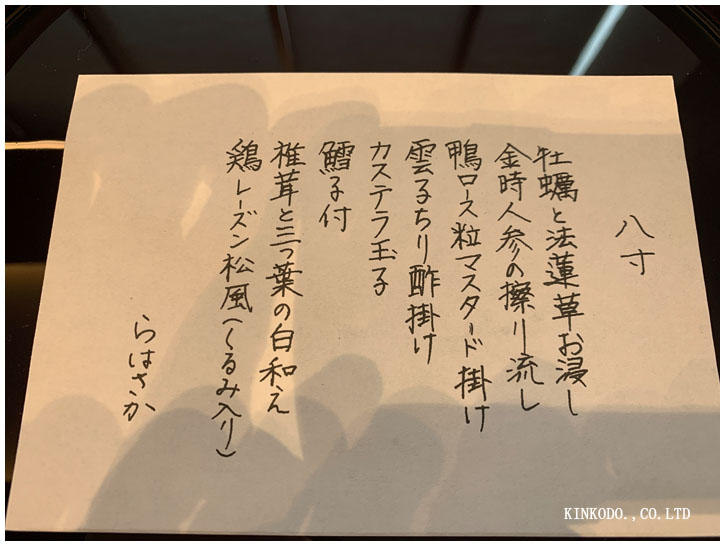 八寸
牡蠣と法蓮草お浸し
金時人参の擦り流し
鴨ロース粒マスタード掛け
雲子ちり酢掛け
カステラ玉子
鱈子付
椎茸と三つ葉の白和え
鶏レーズン松風(くるみ入り)
らはさか
KINKODO.,CO.LTD